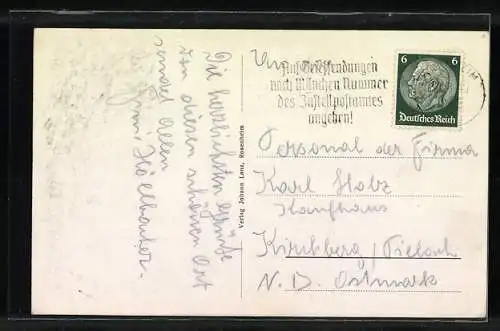 Die herzlichsten Grüße
von diesem schönen Ort
sendet Allen
Verlag Johann Lanz, Rosenheim
An
Auf Briefsendungen
nach München Nummer
des Zustellpostamtes
angeben!
6 6
Deutsches Reich
Personal der Firma
Karl Holz
Kaufhaus
Kirchberg
N. D. Ostmark